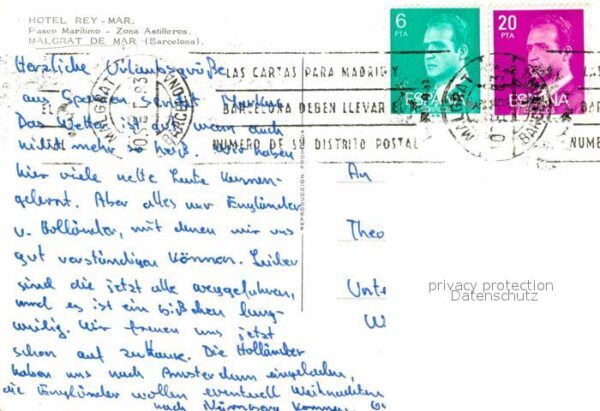 HOTEL REY-MAR.
Paseo Marítimo - Zona Astilleros.
MALGRAT DE MAR (Barcelona).
6 PTA
20 PTA
ESPAÑA
ESPAÑA
LAS CARTAS PARA MADRID Y
BARCELONA DEBEN LLEVAR EL
NUMERO DE SU DISTRITO POSTAL
NUME
MALGRAT
BARCELONA
MALGRAT
BARCELONA
Herzliche Urlaubsgrüße
aus Spanien sendet Markus
Das Wetter ist gut, wenn auch
nicht mehr so heiß. Wir haben
hier viele nette Leute kennen-
gelernt. Aber alles nur Engländer
u. Holländer, mit denen wir uns
gut verständigen können. Leider
sind die jetzt alle weggefahren,
und es ist ein bißchen lang-
weilig. Wir freuen uns jetzt
schon auf zuhause. Die Holländer
haben uns nach Amsterdam eingeladen,
die Engländer wollen eventuell Weihnachten
nach Nürnberg kommen.
An
Theo
Unte
W
REPRODUCCION PROHIBIDA
privacy protection
Datenschutz